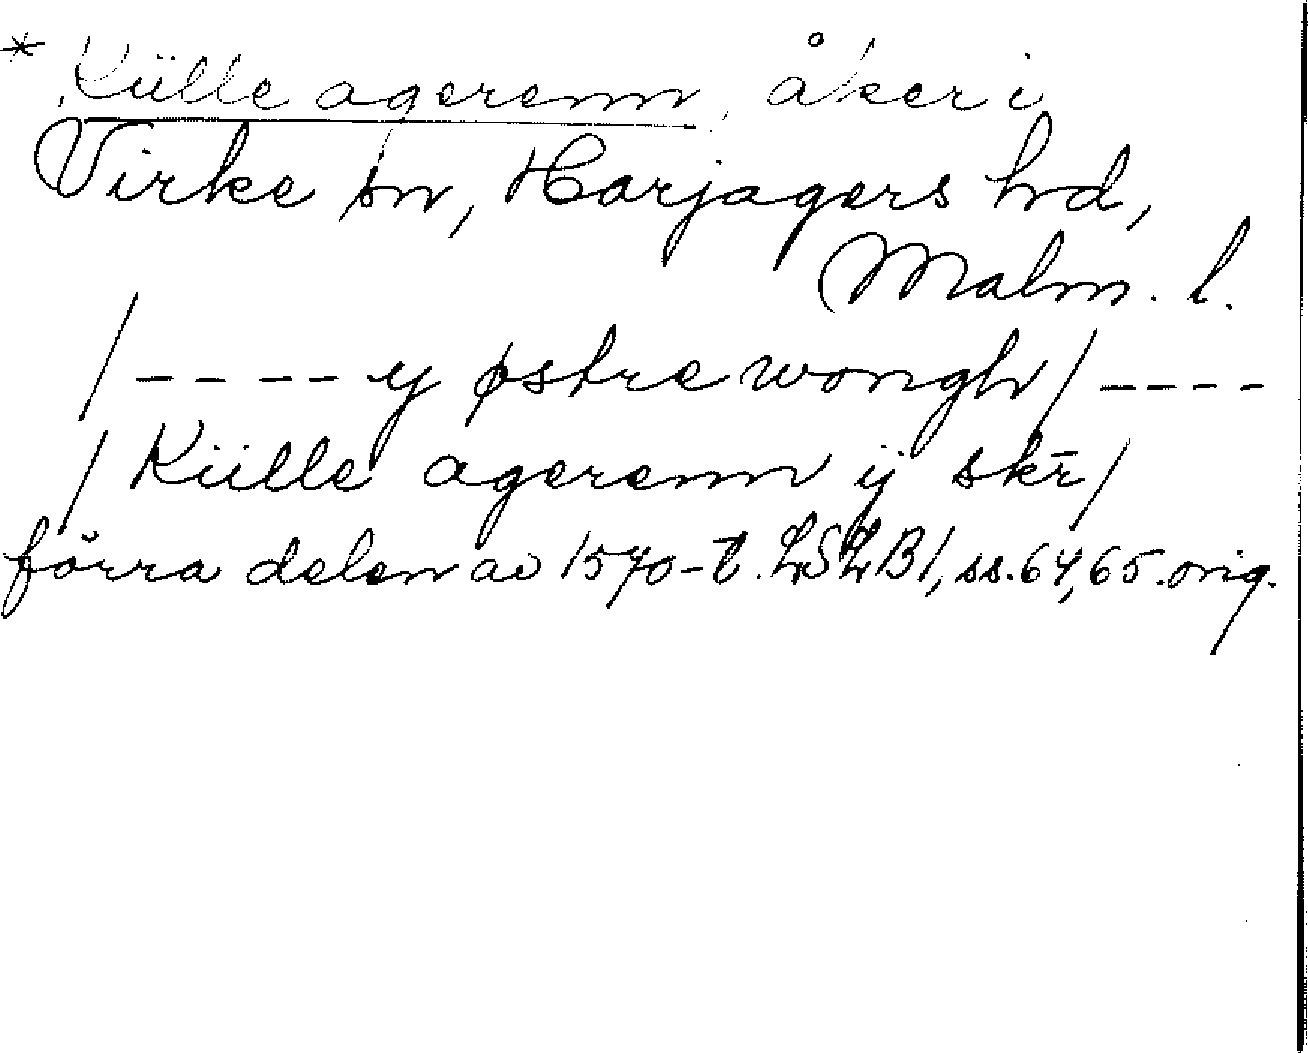 * Külle agerenn, åker i
Virke sn, Harjagers hd,
Malm. l.
/---- y østre wongh/----
/ Külle agerenn ij skr̄/
förra delen av 1570-t. LSLB1, ss. 64, 65. orig.